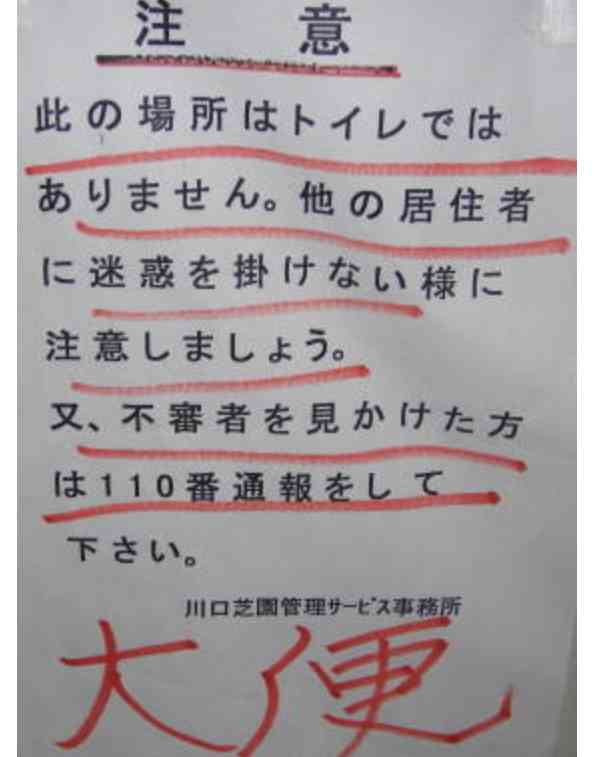 注意
此の場所はトイレでは
ありません。他の居住者
に迷惑を掛けない様に
注意しましょう。
又、不審者を見かけた方
は110番通報をして
下さい。
川口芝園管理サービス事務所
大便